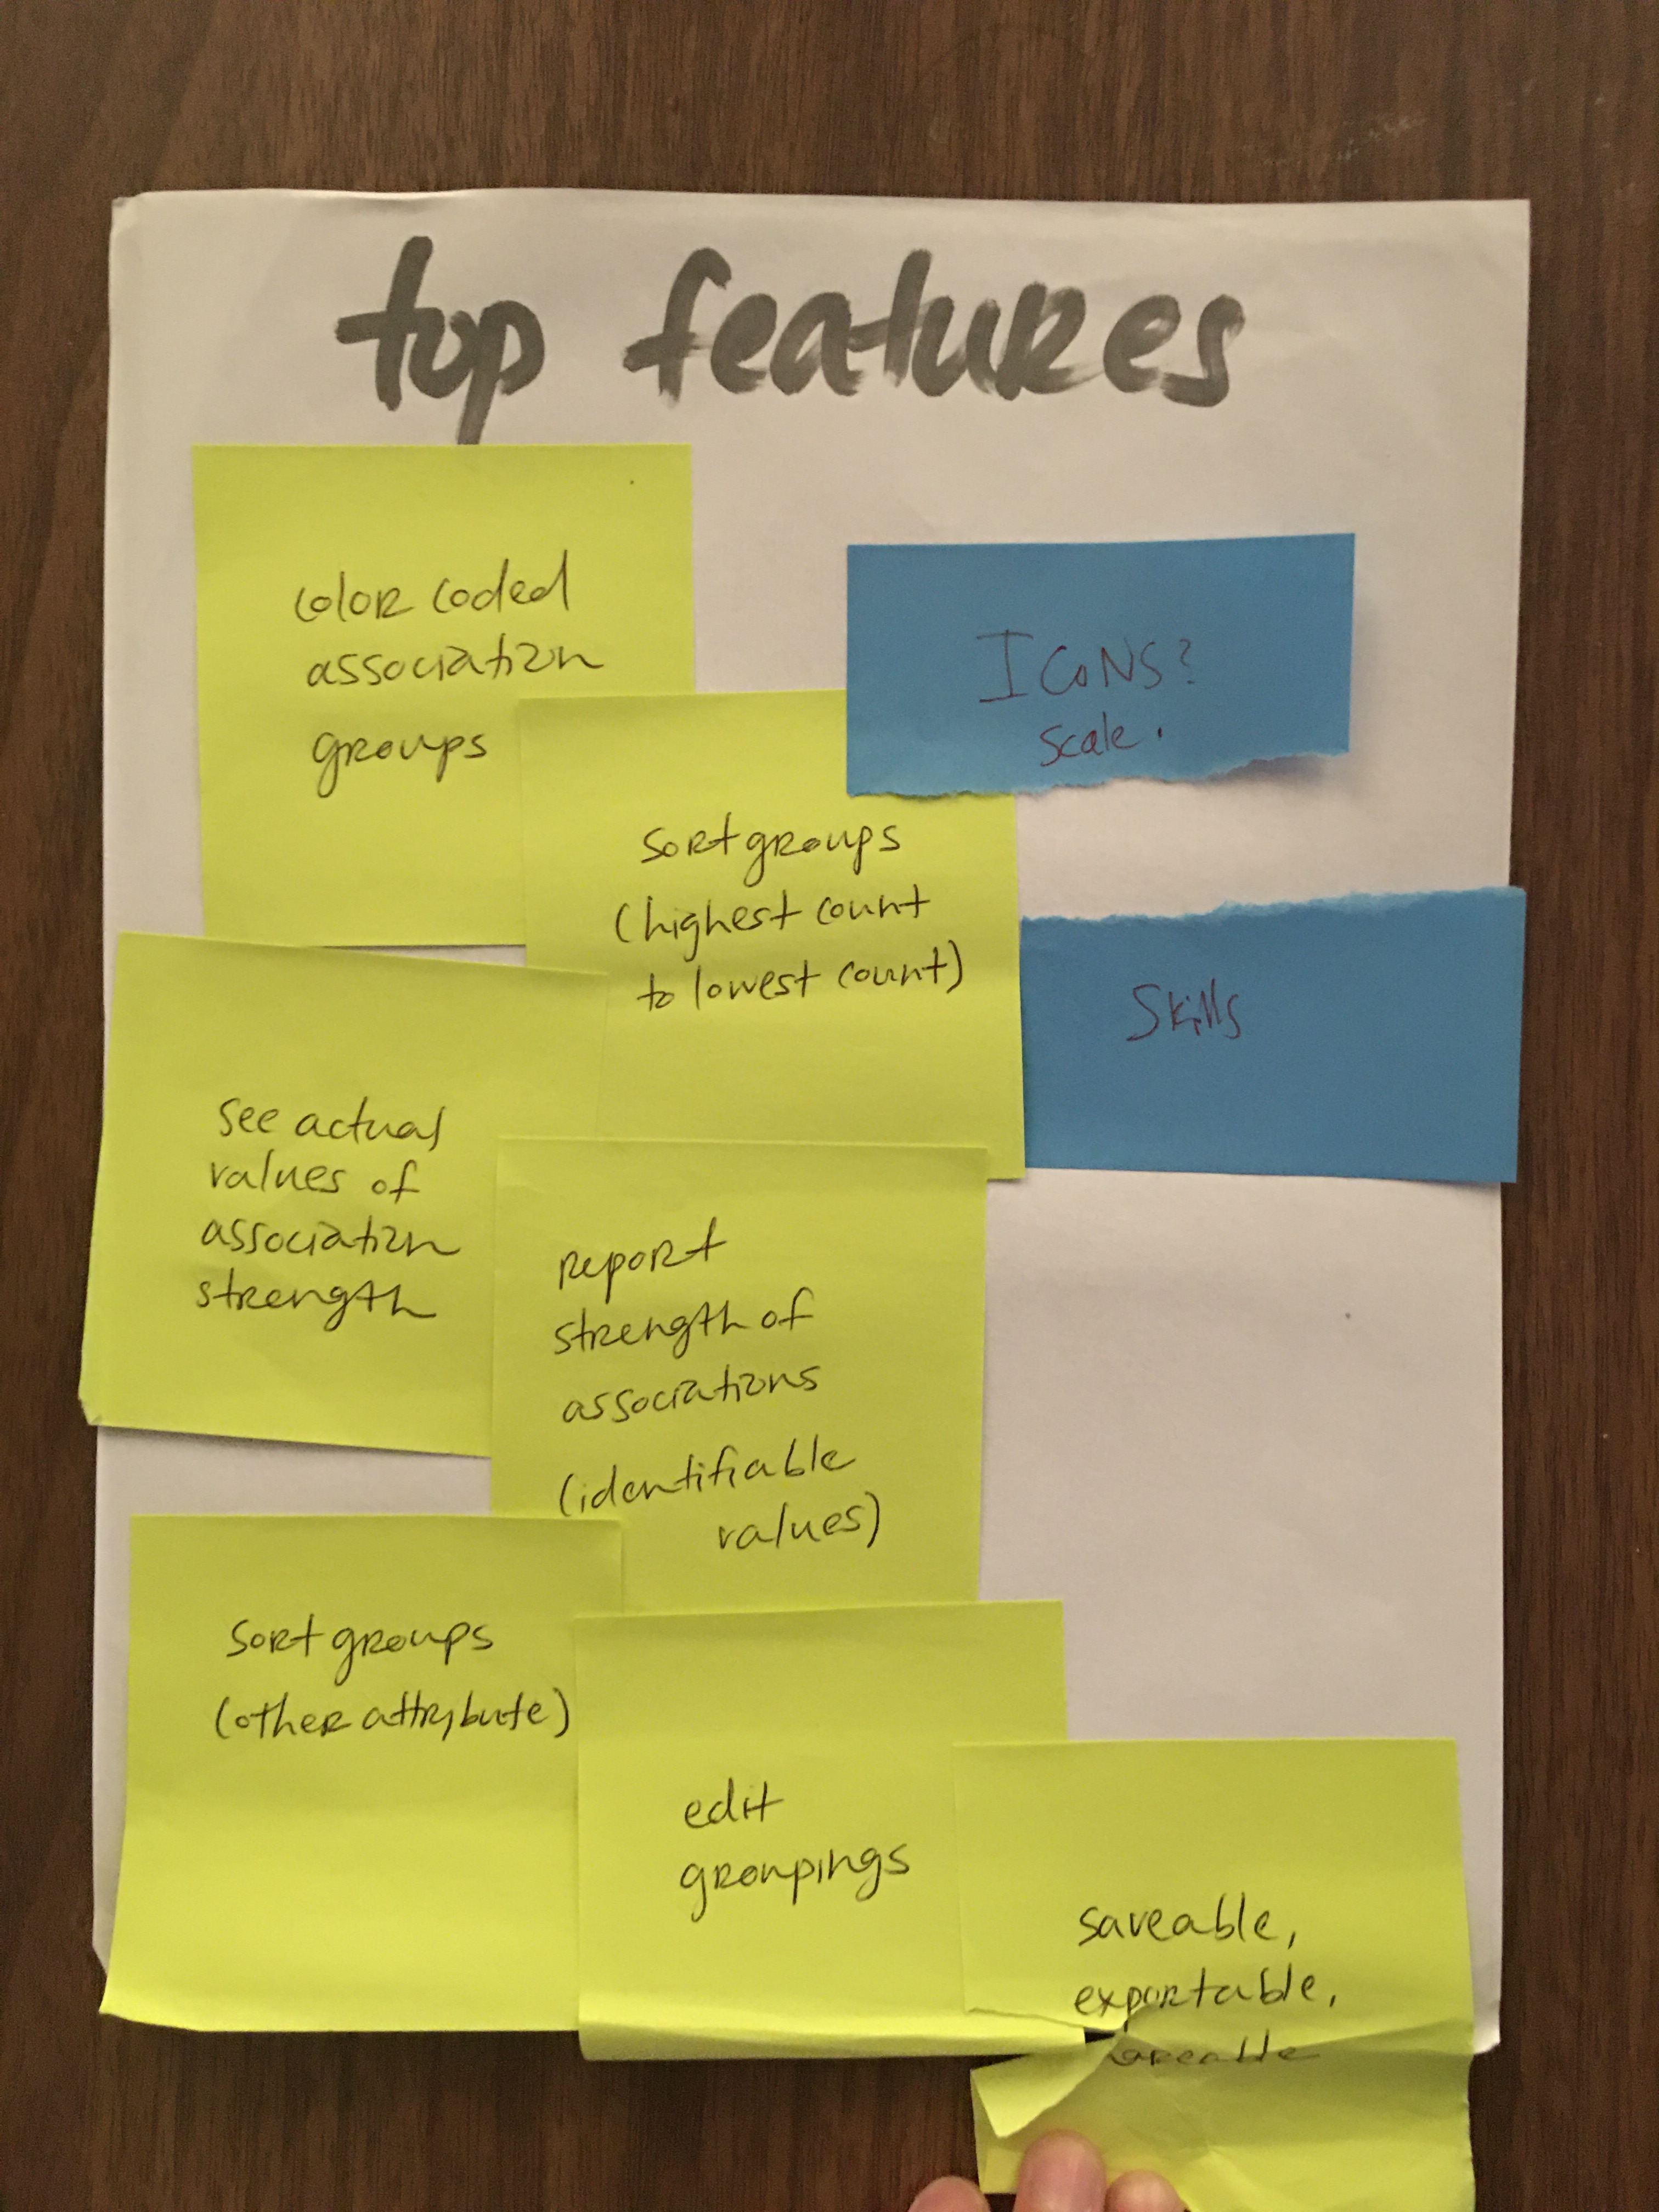 top features
color coded
association
groups
ICONS?
scale.
sort groups
(highest count
to lowest count)
Skills
see actual
values of
association
strength
report
strength of
associations
(identifiable
values)
sort groups
(other attribute)
edit
groupings
saveable,
exportable,